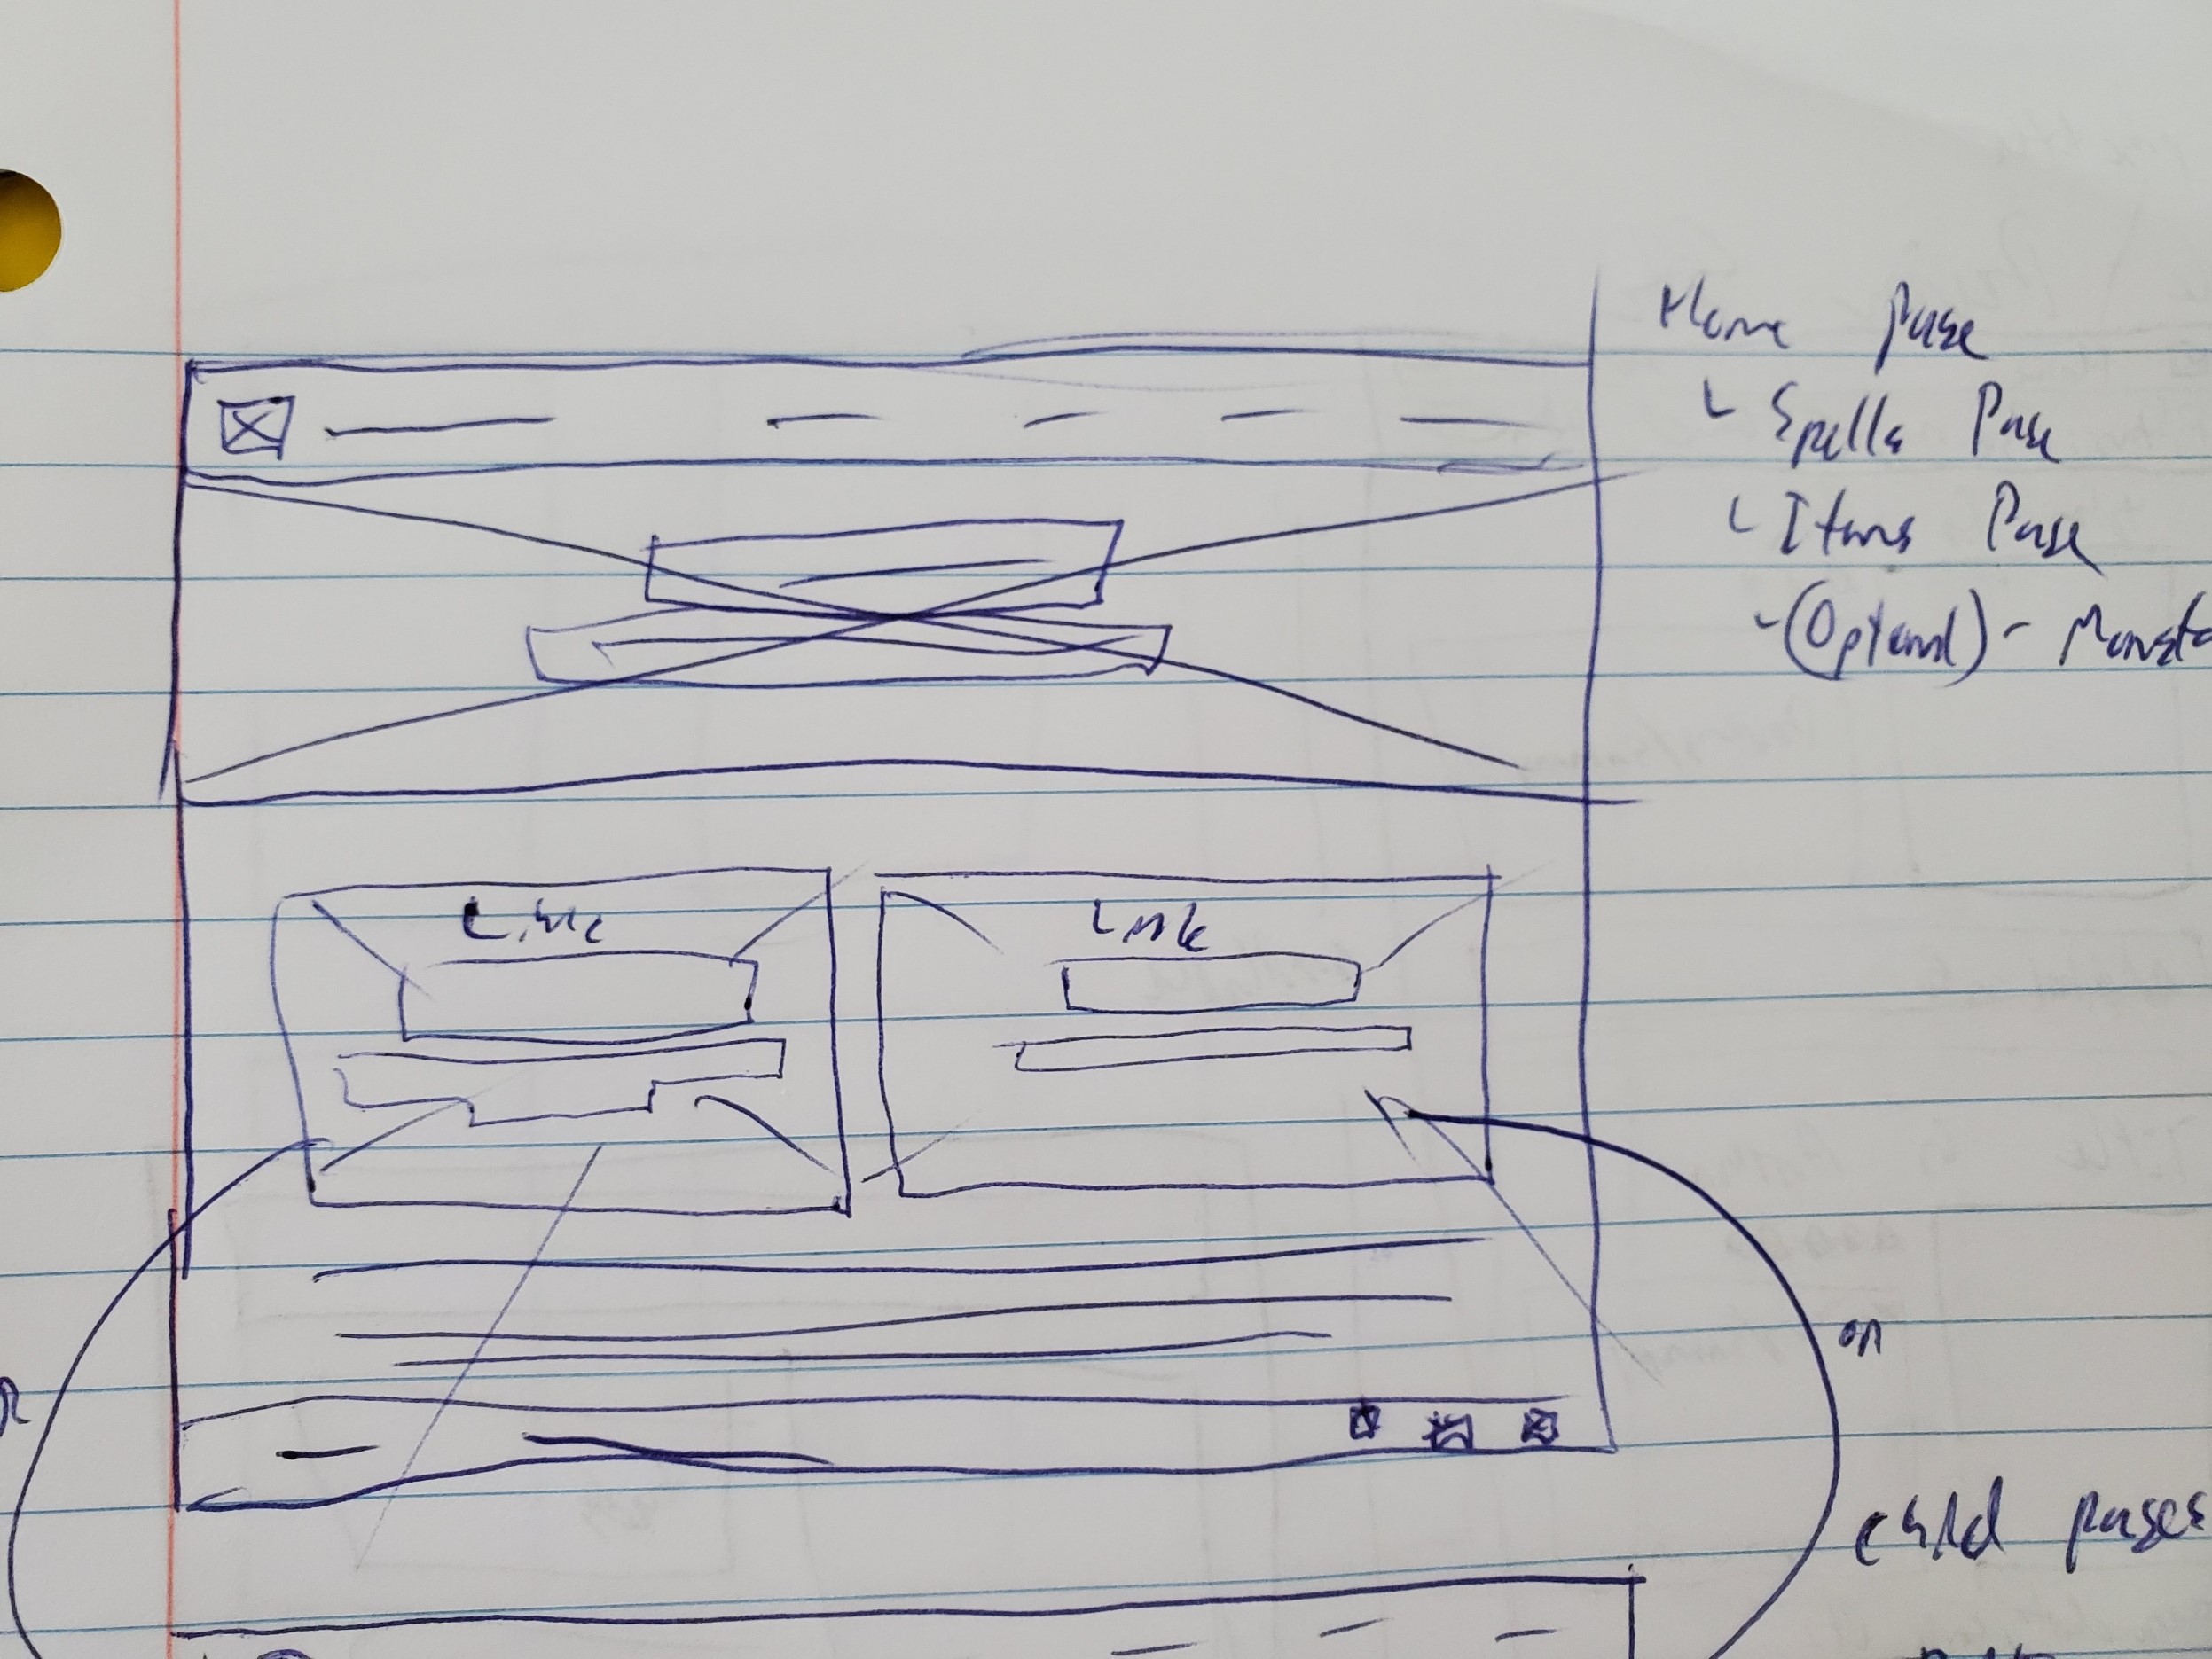 Home Page
Spells Page
Items Page
(Optional) - Monste
Link
Link
or
child pages